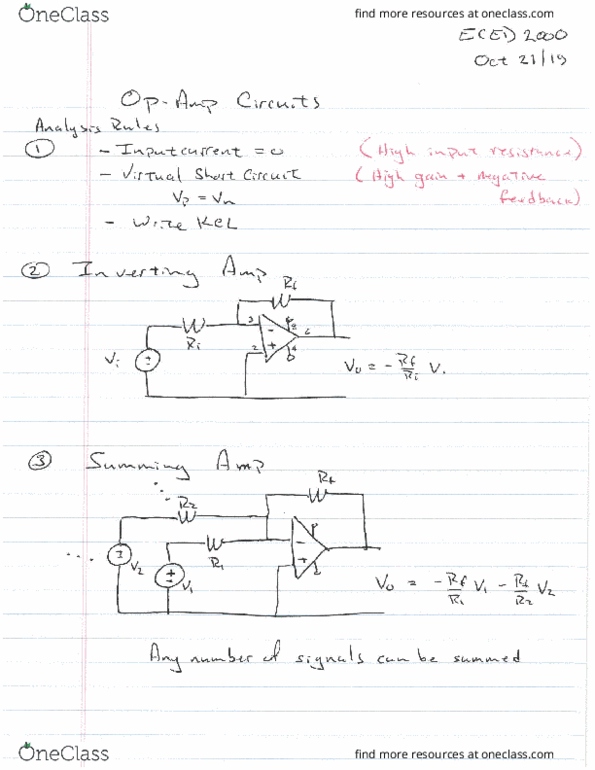 OneClass
find more resources at oneclass.com
ECED 2000
Oct 21/19
Op-Amp Circuits
Analysis Rules
① - Input current = 0 (High input resistance)
- Virtual Short Circuit (High gain + negative feedback)
Vp = Vn
- Write KCL
② Inverting Amp
Rf
Ri
Vi
- +
2
6
4
Vo = - Rf/Ri V.
③ Summing Amp
Rf
R2
R1
V2
V1
- +
Vo = -Rf/R1 V1 - Rf/R2 V2
Any number of signals can be summed
OneClass
find more resources at oneclass.com